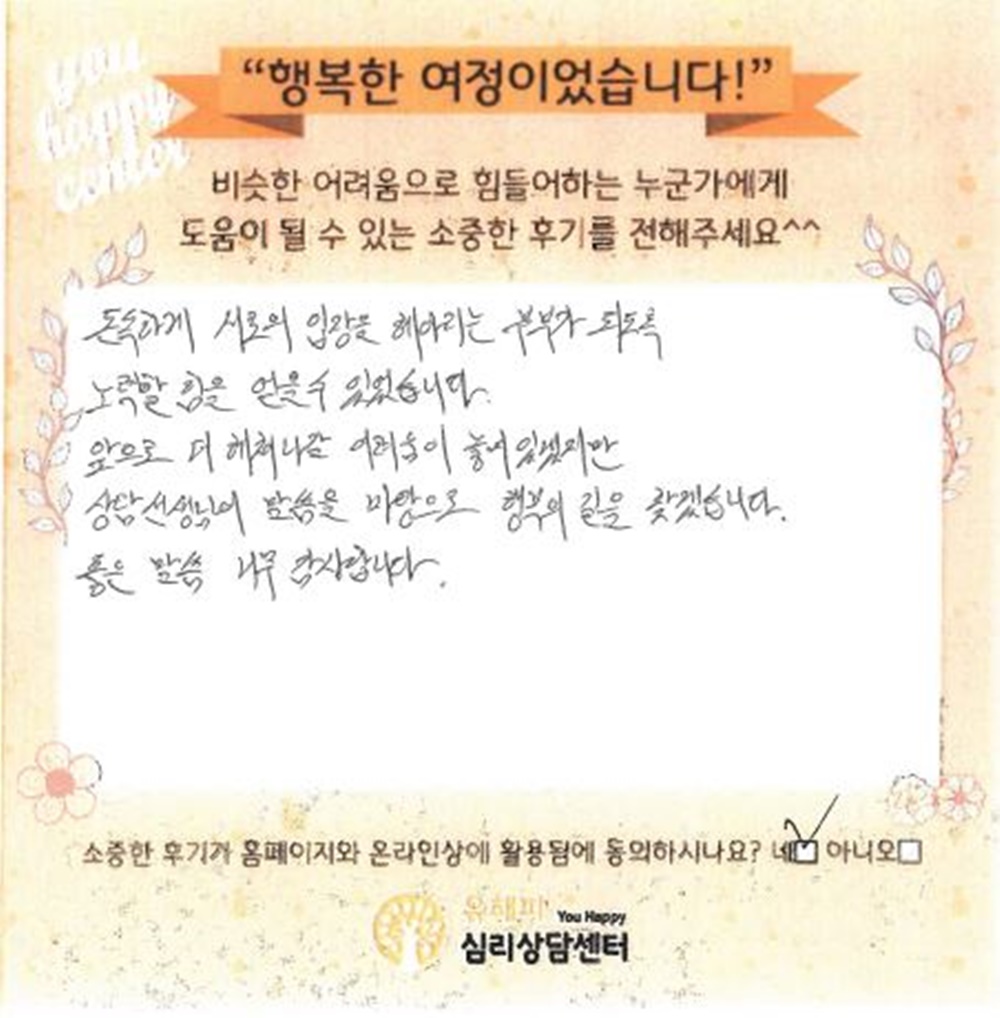 you
happy
center
“행복한 여정이었습니다!”
비슷한 어려움으로 힘들어하는 누군가에게
도움이 될 수 있는 소중한 후기를 전해주세요^^
돈독하게 서로의 입장을 헤아리는 부부가 되도록
노력할 힘을 얻을수 있었습니다.
앞으로 더 헤쳐나갈 어려움이 놓여있겠지만
상담선생님의 말씀을 바탕으로 행복의 길을 찾겠습니다.
좋은 말씀 너무 감사합니다.
소중한 후기가 홈페이지와 온라인상에 활용됨에 동의하시나요? 네 아니오
유해피 You Happy
심리상담센터